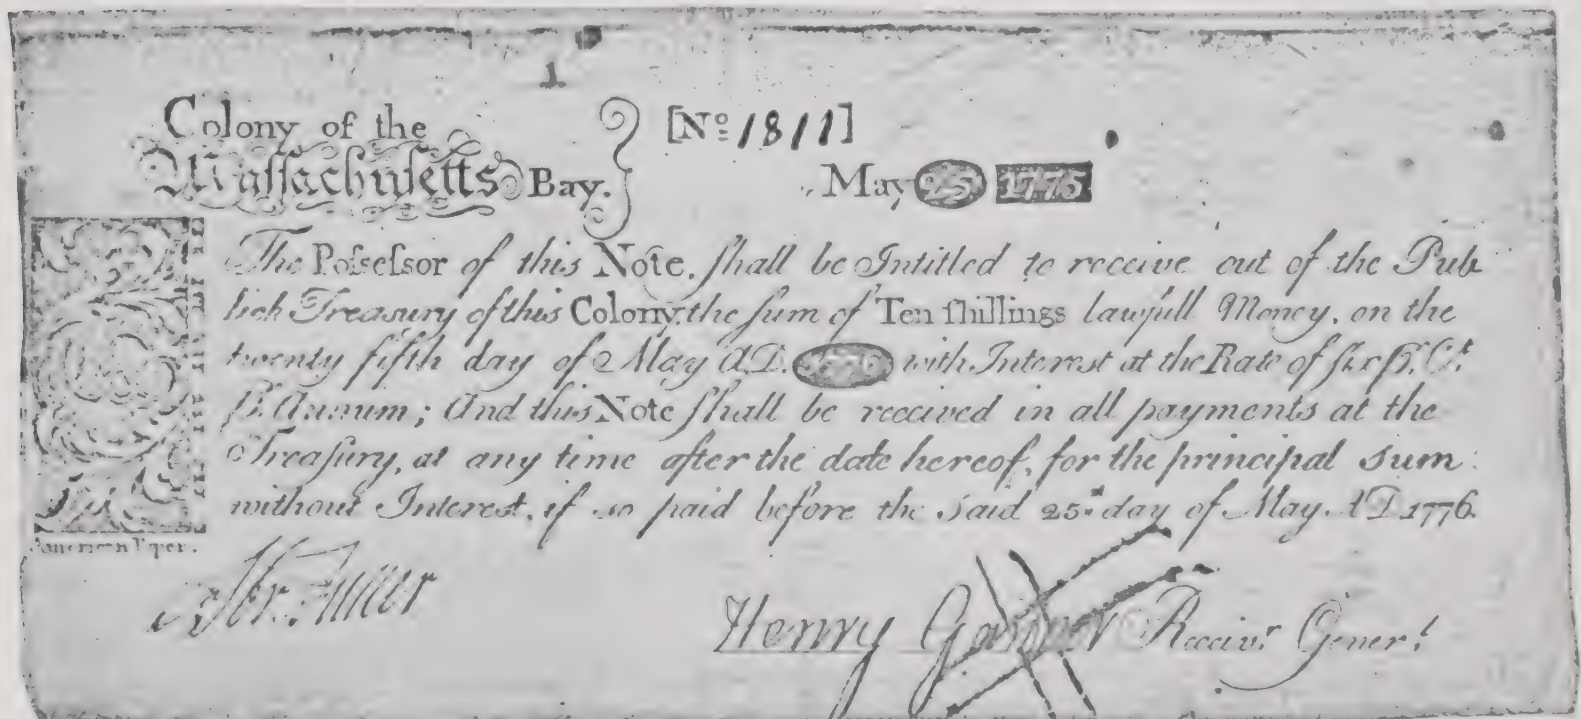 1
Colony of the
Maſſachuſetts Bay.
[No 1811]
May 25 1775
The Poſseſsor of this Note, ſhall be Intitled to receive out of the Pub
lick Treasury of this Colony, the ſum of Ten ſhillings lawfull Money, on the
twenty fifth day of May A.D. 1776 with Interest at the Rate of ſix ⅌r. Ct.
⅌. Annum; And this Note ſhall be received in all payments at the
Treaſury, at any time after the date hereof, for the principal Sum
without Interest, if so paid before the said 25th day of May. A D 1776.
American Paper.
Abr. Fuller
Henry Gardner Receivr Generl